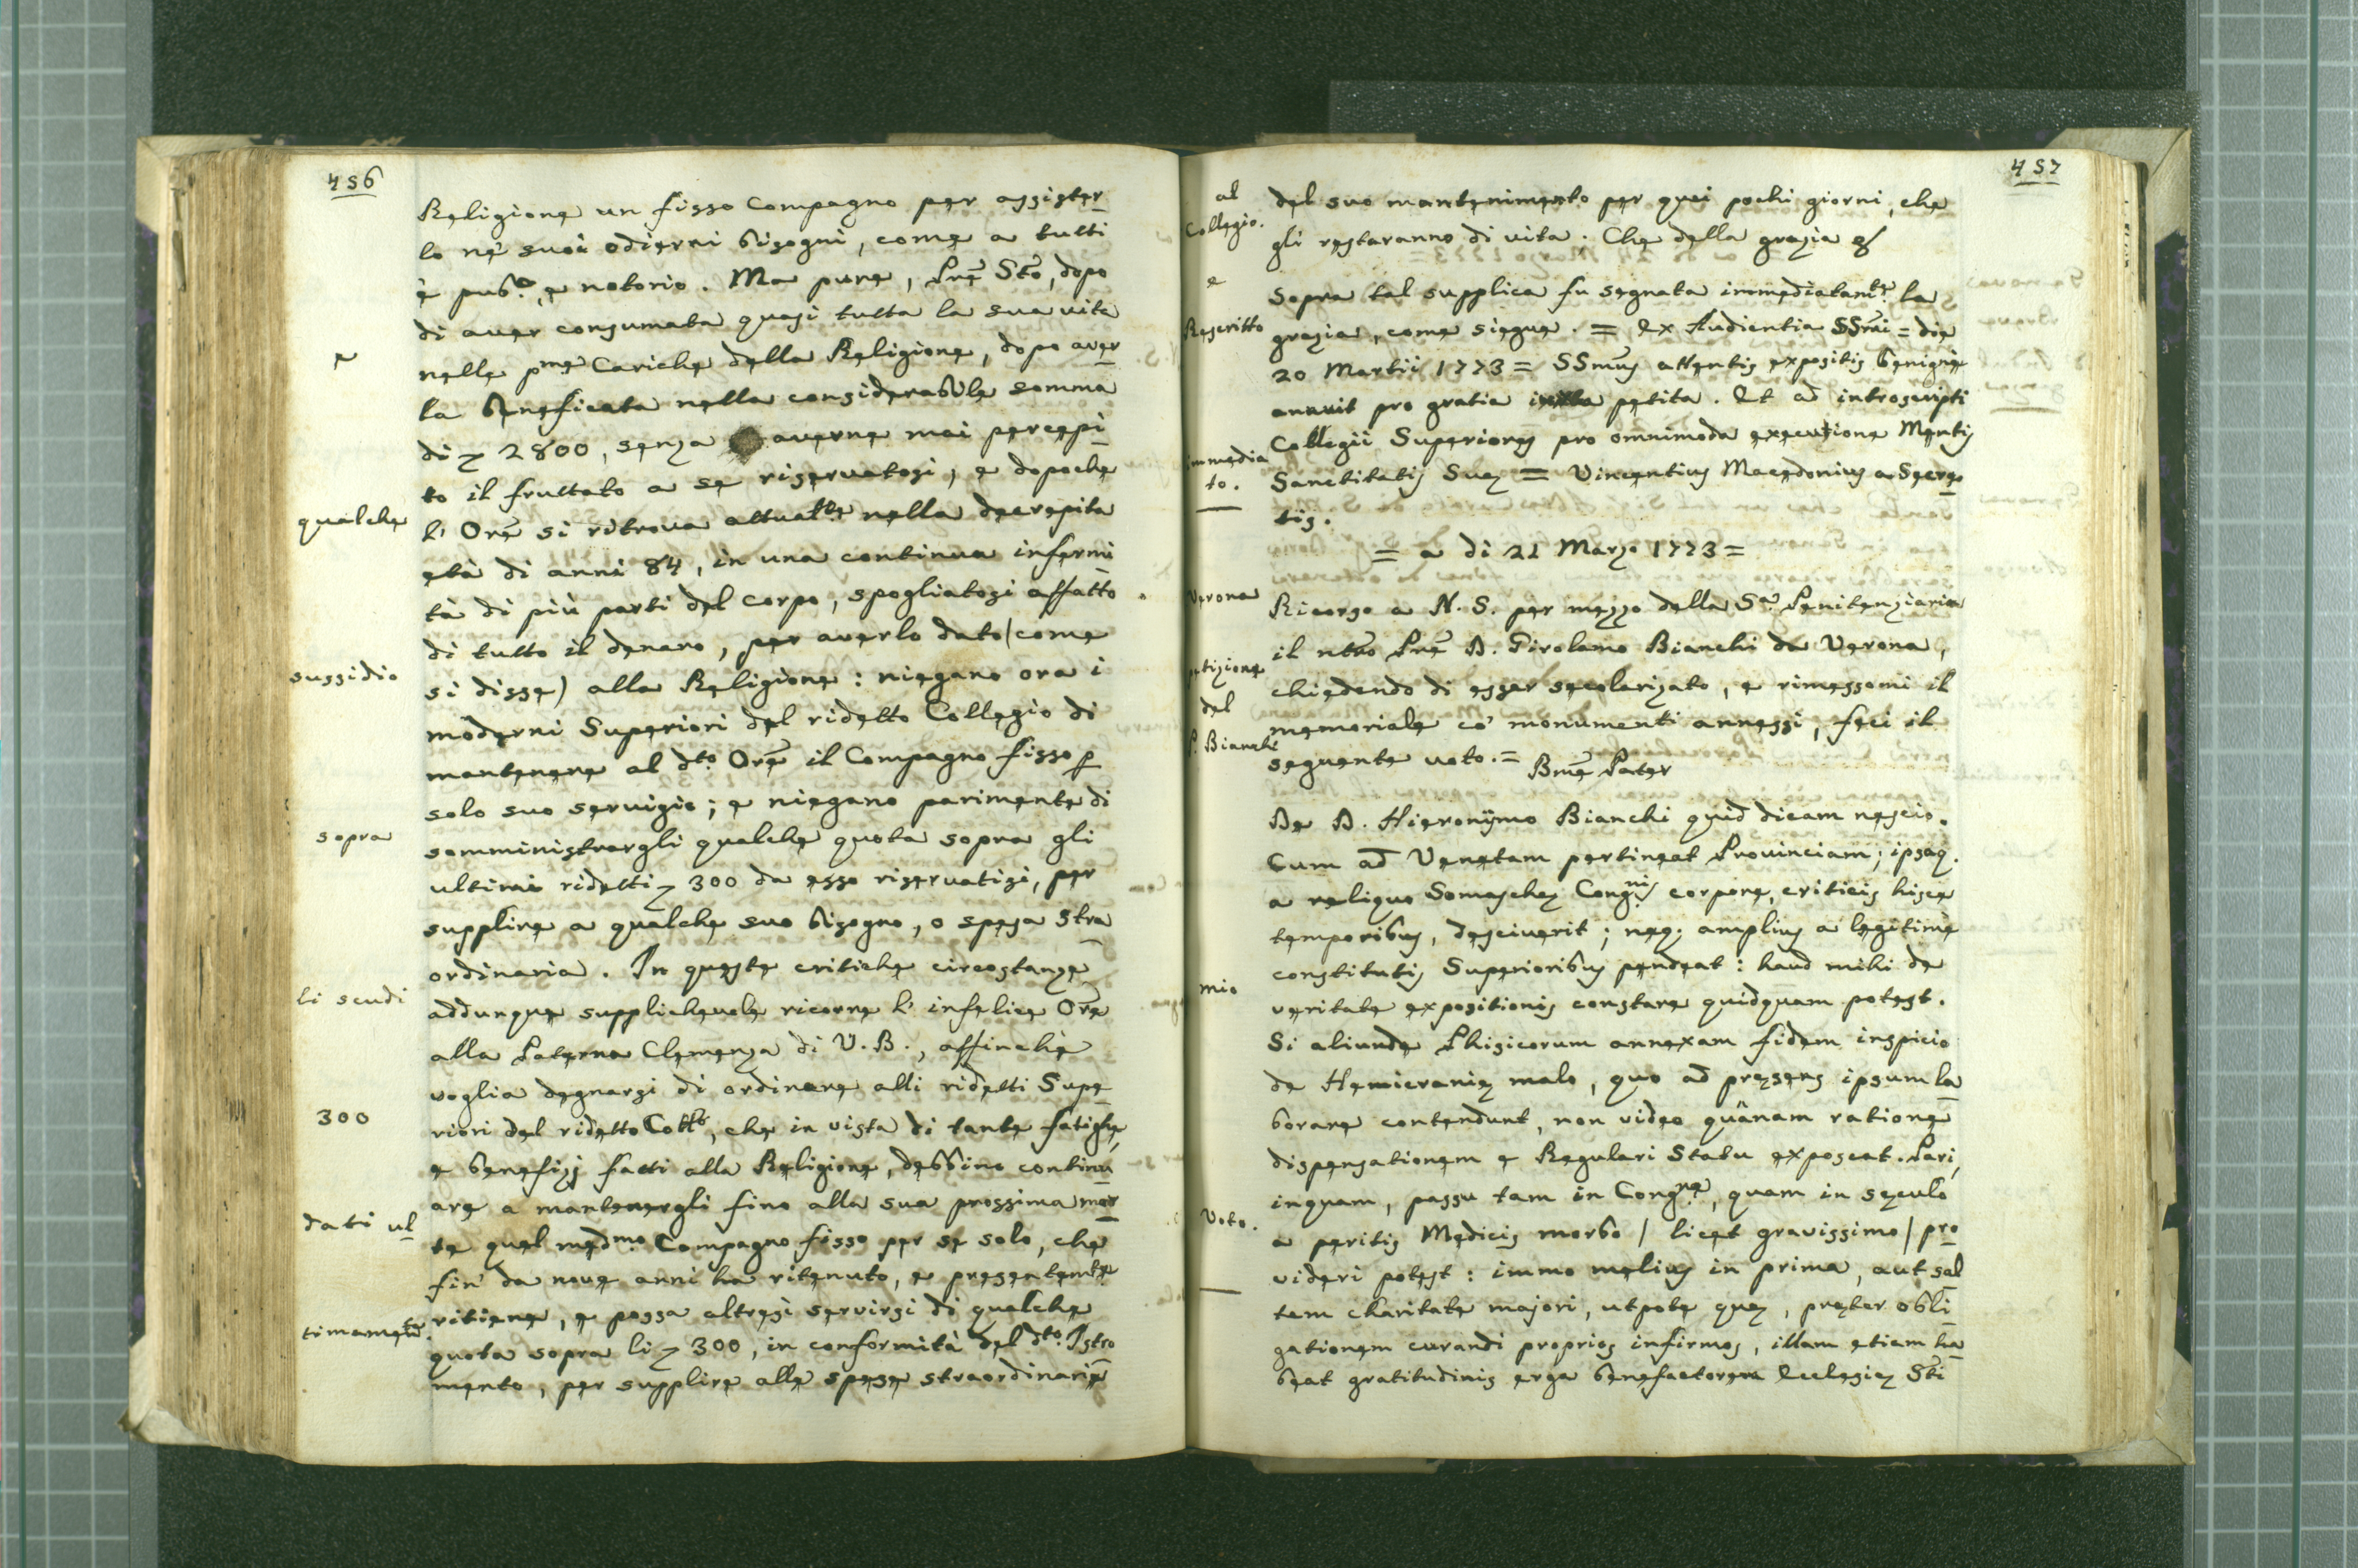 456
Religione un fisso Compagno per assister
lo ne' suoi odierni bisogni, come a tutti
è pub.co, e notorio. Ma pure, Pre Sto, dopo
di aver consumata quasi tutta la sua vita
e
nelle pme Cariche della Religione, dopo aver
la beneficata nella considerabile somma
di 2800, senza averne mai percepi
to il fruttato a se riservatosi, e dopoche
qualche
l' Ore si ritrova attualte nella decrepita
età di anni 84, in una continua infermi
tà di più parti del corpo, spogliatosi affatto
di tutto il denaro, per averlo dato (come
sussidio
si disse) alla Religione: niegano ora i
moderni Superiori del ridetto Collegio di
mantenere al dto Ore il Compagno fisso p
solo suo servigio; e niegano parimente di
sopra
somministrargli qualche quota sopra gli
ultimi ridetti 300 da esso riservatisi, per
supplire a qualche suo bisogno, o spesa stra
ordinaria. In queste critiche circostanze
li scudi
addunque supplichevole ricorre l' infelice Ore
alla Paterna Clemenza di V. B., affinchè
voglia degnarsi di ordinare alli ridetti Supe
300
riori del ridetto Collo, che in vista di tante fatighe,
e benefizj fatti alla Religione, debbino continu
are a mantenergli fino alla sua prossima mor
dati ul
te quel medmo Compagno fisso per se solo, che
fin' da nove anni ha ritenuto, e presentemte
timamete.
ritiene, e possa altresì servirsi di qualche
quota sopra li 300, in conformità del dto Istro
mento, per supplire alle spese straordinarie
457
al
Collegio.
del suo mantenimento per quei pochi giorni, che
gli restaranno di vita. Che della grazia &
e
Rescritto
immedia
to.
Sopra tal supplica fu segnata immediatamte la
grazia, come siegue. = Ex Audientia SSmi = die
20 Martii 1773 = SSmus attentis expositis benigne
annuit pro gratia petita. Et ad introscripti
Collegii Superiores pro omnimoda executione Mentis
Sanctitatis Suae = Vincentius Macedonius a Secre
tis.
= a di 21 Marzo 1773 =
Verona
Ricorso a N. S. per mezzo della Sa Penitenziaria
il ntro Pre D. Girolamo Bianchi da Verona,
petizione
del
P. Bianchi
chiedendo di esser secolarizato, e rimessomi il
memoriale co' monumenti annessi, feci il
seguente voto. = Bme Pater
De D. Hieronÿmo Bianchi quid dicam nescio.
Cum ad Venetam pertineat Provinciam; ipsaq.
a reliquo Somaschae Congnis corpore, criticis hisce
temporibus, desciverit; neq. amplius a legitime
mio
constitutis Superioribus pendeat: haud mihi de
veritate expositionis constare quidquam potest.
Si aliunde Phisicorum annexam fidem inspicio
de Hemicraniae malo, quo ad praesens ipsum la
borare contendunt, non video quânam ratione
dispensationem e Regulari Statu exposcat. Pari,
inquam, passu tam in Congne, quam in saeculo
Voto.
a peritis Medicis morbo / licet gravissimo / pro
videri potest: immo melius in prima, aut sal
tem charitate majori, utpote quae, praeter obli
gationem curandi proprios infirmos, illam etiam ha
beat gratitudinis erga benefactorem Ecclesiae Sti